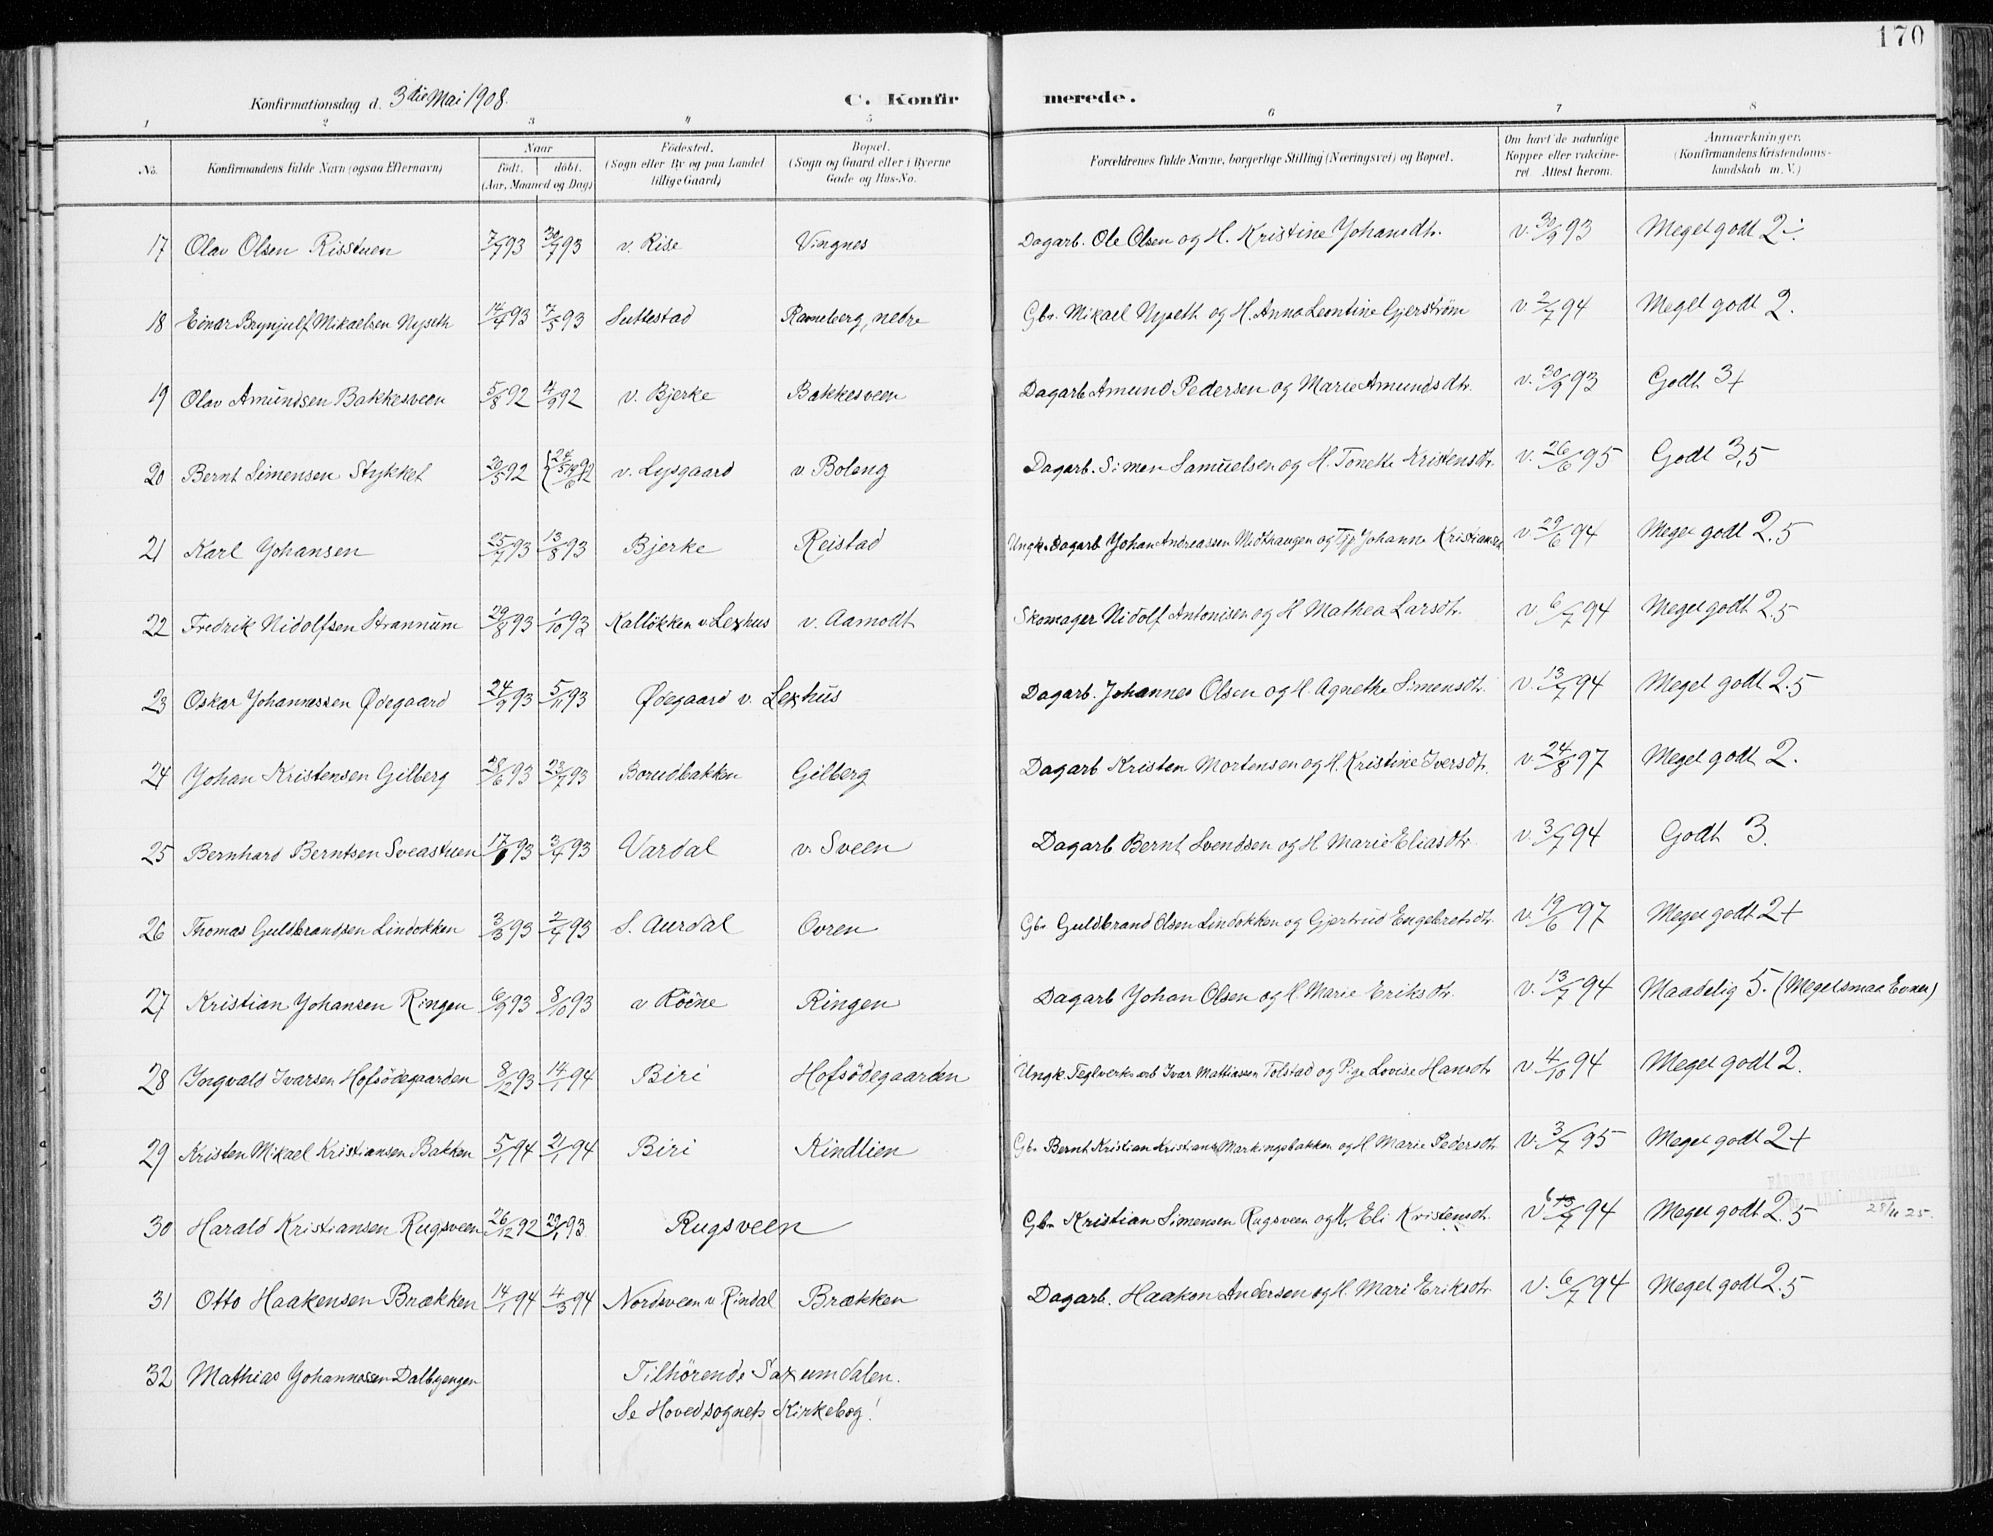 170
Konfirmationsdag d. 3die Mai 1908. C. Konfirmerede.
1 2 3 4 5 6 7 8
No. Konfirmandens fulde Navn (ogsaa Efternavn) Naar født. døbt. (Aar, Maaned og Dag) Fødested. (Sogn eller By og paa Landet tillige Gaard) Bopæl. (Sogn og Gaard eller i Byerne Gade og Hus-No. Forældrenes fulde Navne, borgerlige Stilling (Næringsvei) og Bopæl. Om havt de naturlige Kopper eller vaccineret Attest herom. Anmærkninger. (Konfirmandens Kristendomskundskab m. V.)
17 Olav Olsen Risstuen 7/7 93 30/7 93 v. Rise Vingnes Dagarb. Ole Olsen og H. Kristine Johansdtr. v. 30/9 93 Meget godt 2÷
18 Einar Brynjulf Mikaelsen Nyseth 14/4 93 7/5 93 Suttestad Ravneberg, nedre Gbr. Mikael Nyseth og H. Anna Leontine Gjerstrøm v. 2/7 94 Meget godt 2.
19 Olav Amundsen Bakkesveen 5/8 92 4/9 92 v. Bjerke Bakkesveen Dagarb Amund Pedersen og Marie Amundsdtr. v. 30/9 93 Godt 3+
20 Bernt Simensen Stykket 20/5 92 v. Lysgaard v Boleng Dagarb. Simen Samuelsen og H. Tonette Kristensdtr. v. 26/6 95 Godt 3,5
21 Karl Johansen 25/7 93 13/8 93 Bjerke Reistad Ungk. Dagarb Johan Andreassen Midthaugen og Johanne Kristiansen v 29/6 94 Meget godt 2.5
22 Fredrik Nidolfsen Strannum 29/8 93 1/10 93 Kalløkken v. Lexhus v. Aamodt Skomager Nidolf Antonisen og H Mathea Larsdtr. v 6/7 94 Meget godt 2.5
23 Oskar Johannessen Ødegaard 24/9 93 5/11 93 Ødegaard v. Lexhus Dagarb. Johannes Olsen og H. Agnethe Simensdtr. v. 13/7 94 Meget godt 2.5
24 Johan Kristensen Gilberg 28/6 93 23/7 93 Borudbakken Gilberg Dagarb Kristen Mortensen og H. Kristine Iversdtr. v. 24/8 97 Meget godt 2.
25 Bernhard Berntsen Sveastuen 17/1 93 3/4 93 Vardal v. Sveen Dagarb Bernt Svendsen og H Marie Eliasdtr. v. 3/7 94 Godt 3.
26 Thomas Guldbrandsen Lindokken 3/3 93 2/4 93 S. Aurdal Ovren Gbr Guldbrand Olsen Lindokken og Gjertrud Engebretsdtr. v. 19/6 97 Meget godt 2+
27 Kristian Johansen Ringen 6/9 93 8/10 93 v. Röine Ringen Dagarb Johan Olsen og H. Marie Eriksdtr. v. 13/7 94 Maadelig 5. (Meget smaa Evner)
28 Ingvald Ivarsen Hofsödegaarden 8/12 93 14/1 94 Biri Hofsödegaarden Ungk. Teglverksarb Ivar Mathiassen Tolstad og Pige Lovise Hansdtr v 4/10 94 Meget godt 2.
29 Kristen Mikael Kristiansen Bakken 5/1 94 21/1 94 Biri Kindlien Gbr Bernt Kristian Kristians. Markingsbakken og H Marie Pedersdtr v. 3/7 95 Meget godt 2+
30 Harald Kristiansen Rugsveen 26/12 92 29/1 93. Rugsveen Gbr Kristian Simensen Rugsveen og H. Eli Kristensdtr. v 6/7 94 Meget godt 2.5 28/11 25.
31 Otto Haakensen Brækken 14/1 94 4/3 94 Nordsveen v Rindal Brækken Dagarb. Haakon Andersen og H. Mari Eriksdtr. v. 6/7 94 Meget godt 2.5
32 Mathias Johannessen Dalbygengen Tilhörende Saxumdalen.
Se Hovedsognets Kirkebog!